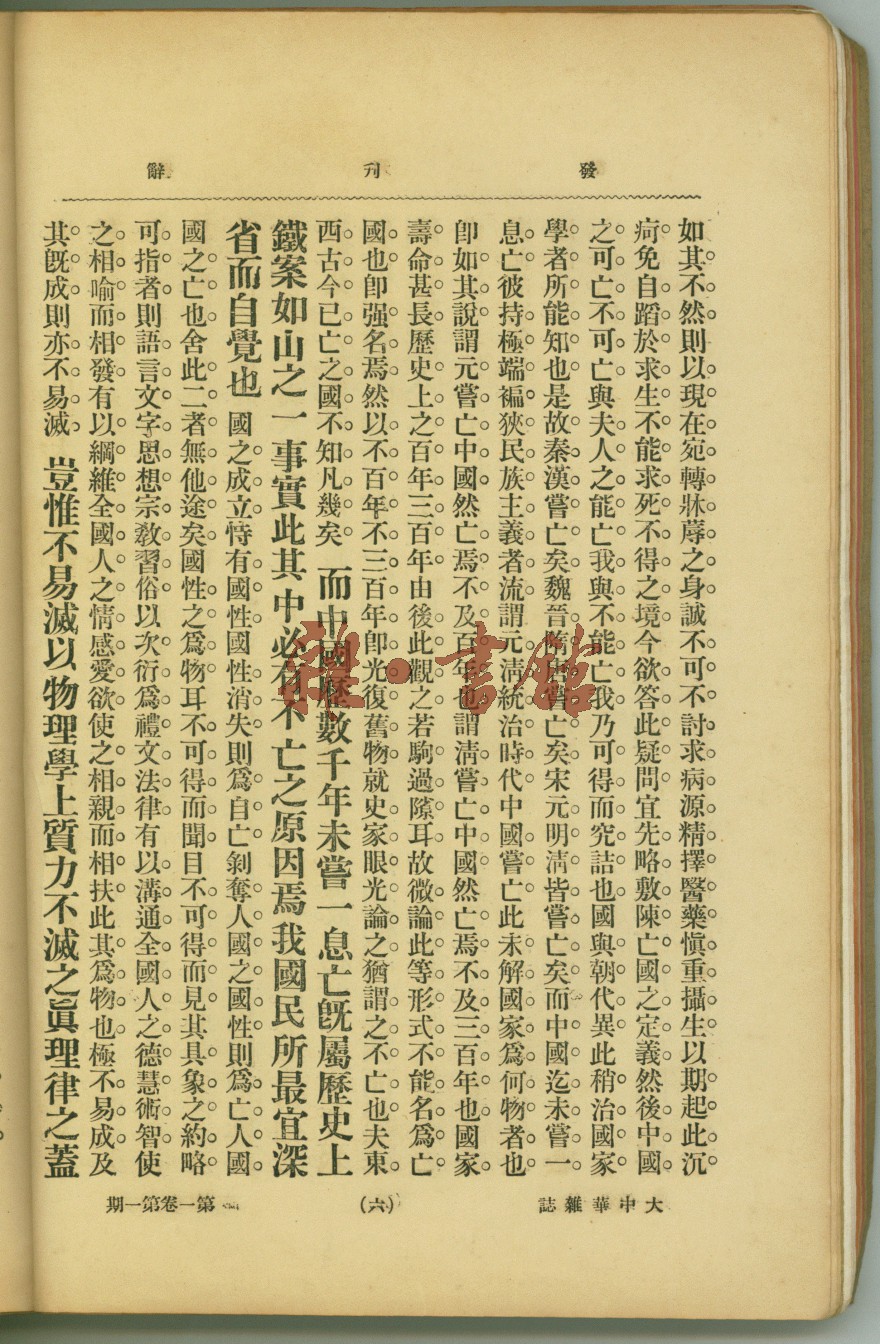 發刊辭
如其不然則以現在宛轉牀蓐之身誠不可不討求病源精擇醫藥愼重攝生以期起此沉
疴免自蹈於求生不能求死不得之境今欲答此疑問宜先略敷陳亡國之定義然後中國
之可亡不可亡與夫人之能亡我與不能亡我乃可得而究詰也國與朝代異此稍治國家
學者所能知也是故秦漢嘗亡矣魏晉隋唐嘗亡矣宋元明淸皆嘗亡矣而中國迄未嘗一
息亡彼持極端褊狹民族主義者流謂元淸統治時代中國嘗亡此未解國家爲何物者也
卽如其說謂元嘗亡中國然亡焉不及百年也謂淸嘗亡中國然亡焉不及三百年也國家
壽命甚長歷史上之百年三百年由後此觀之若駒過隙耳故微論此等形式不能名爲亡
國也卽强名焉然以不百年不三百年卽光復舊物就史家眼光論之猶謂之不亡也夫東
西古今已亡之國不知凡幾矣 而中國歷數千年未嘗一息亡旣屬歷史上
鐵案如山之一事實此其中必有不亡之原因焉我國民所最宜深
省而自覺也 國之成立恃有國性國性消失則爲自亡剝奪人國之國性則爲亡人國
國之亡也舍此二者無他途矣國性之爲物耳不可得而聞目不可得而見其具象之約略
可指者則語言文字思想宗敎習俗以次衍爲禮文法律有以溝通全國人之德慧術智使
之相喻而相發有以綱維全國人之情感愛欲使之相親而相扶此其爲物也極不易成及
其旣成則亦不易滅 豈惟不易滅以物理學上質力不滅之眞理律之蓋
大中華雜誌
(六)
第一卷第一期
雅·書館